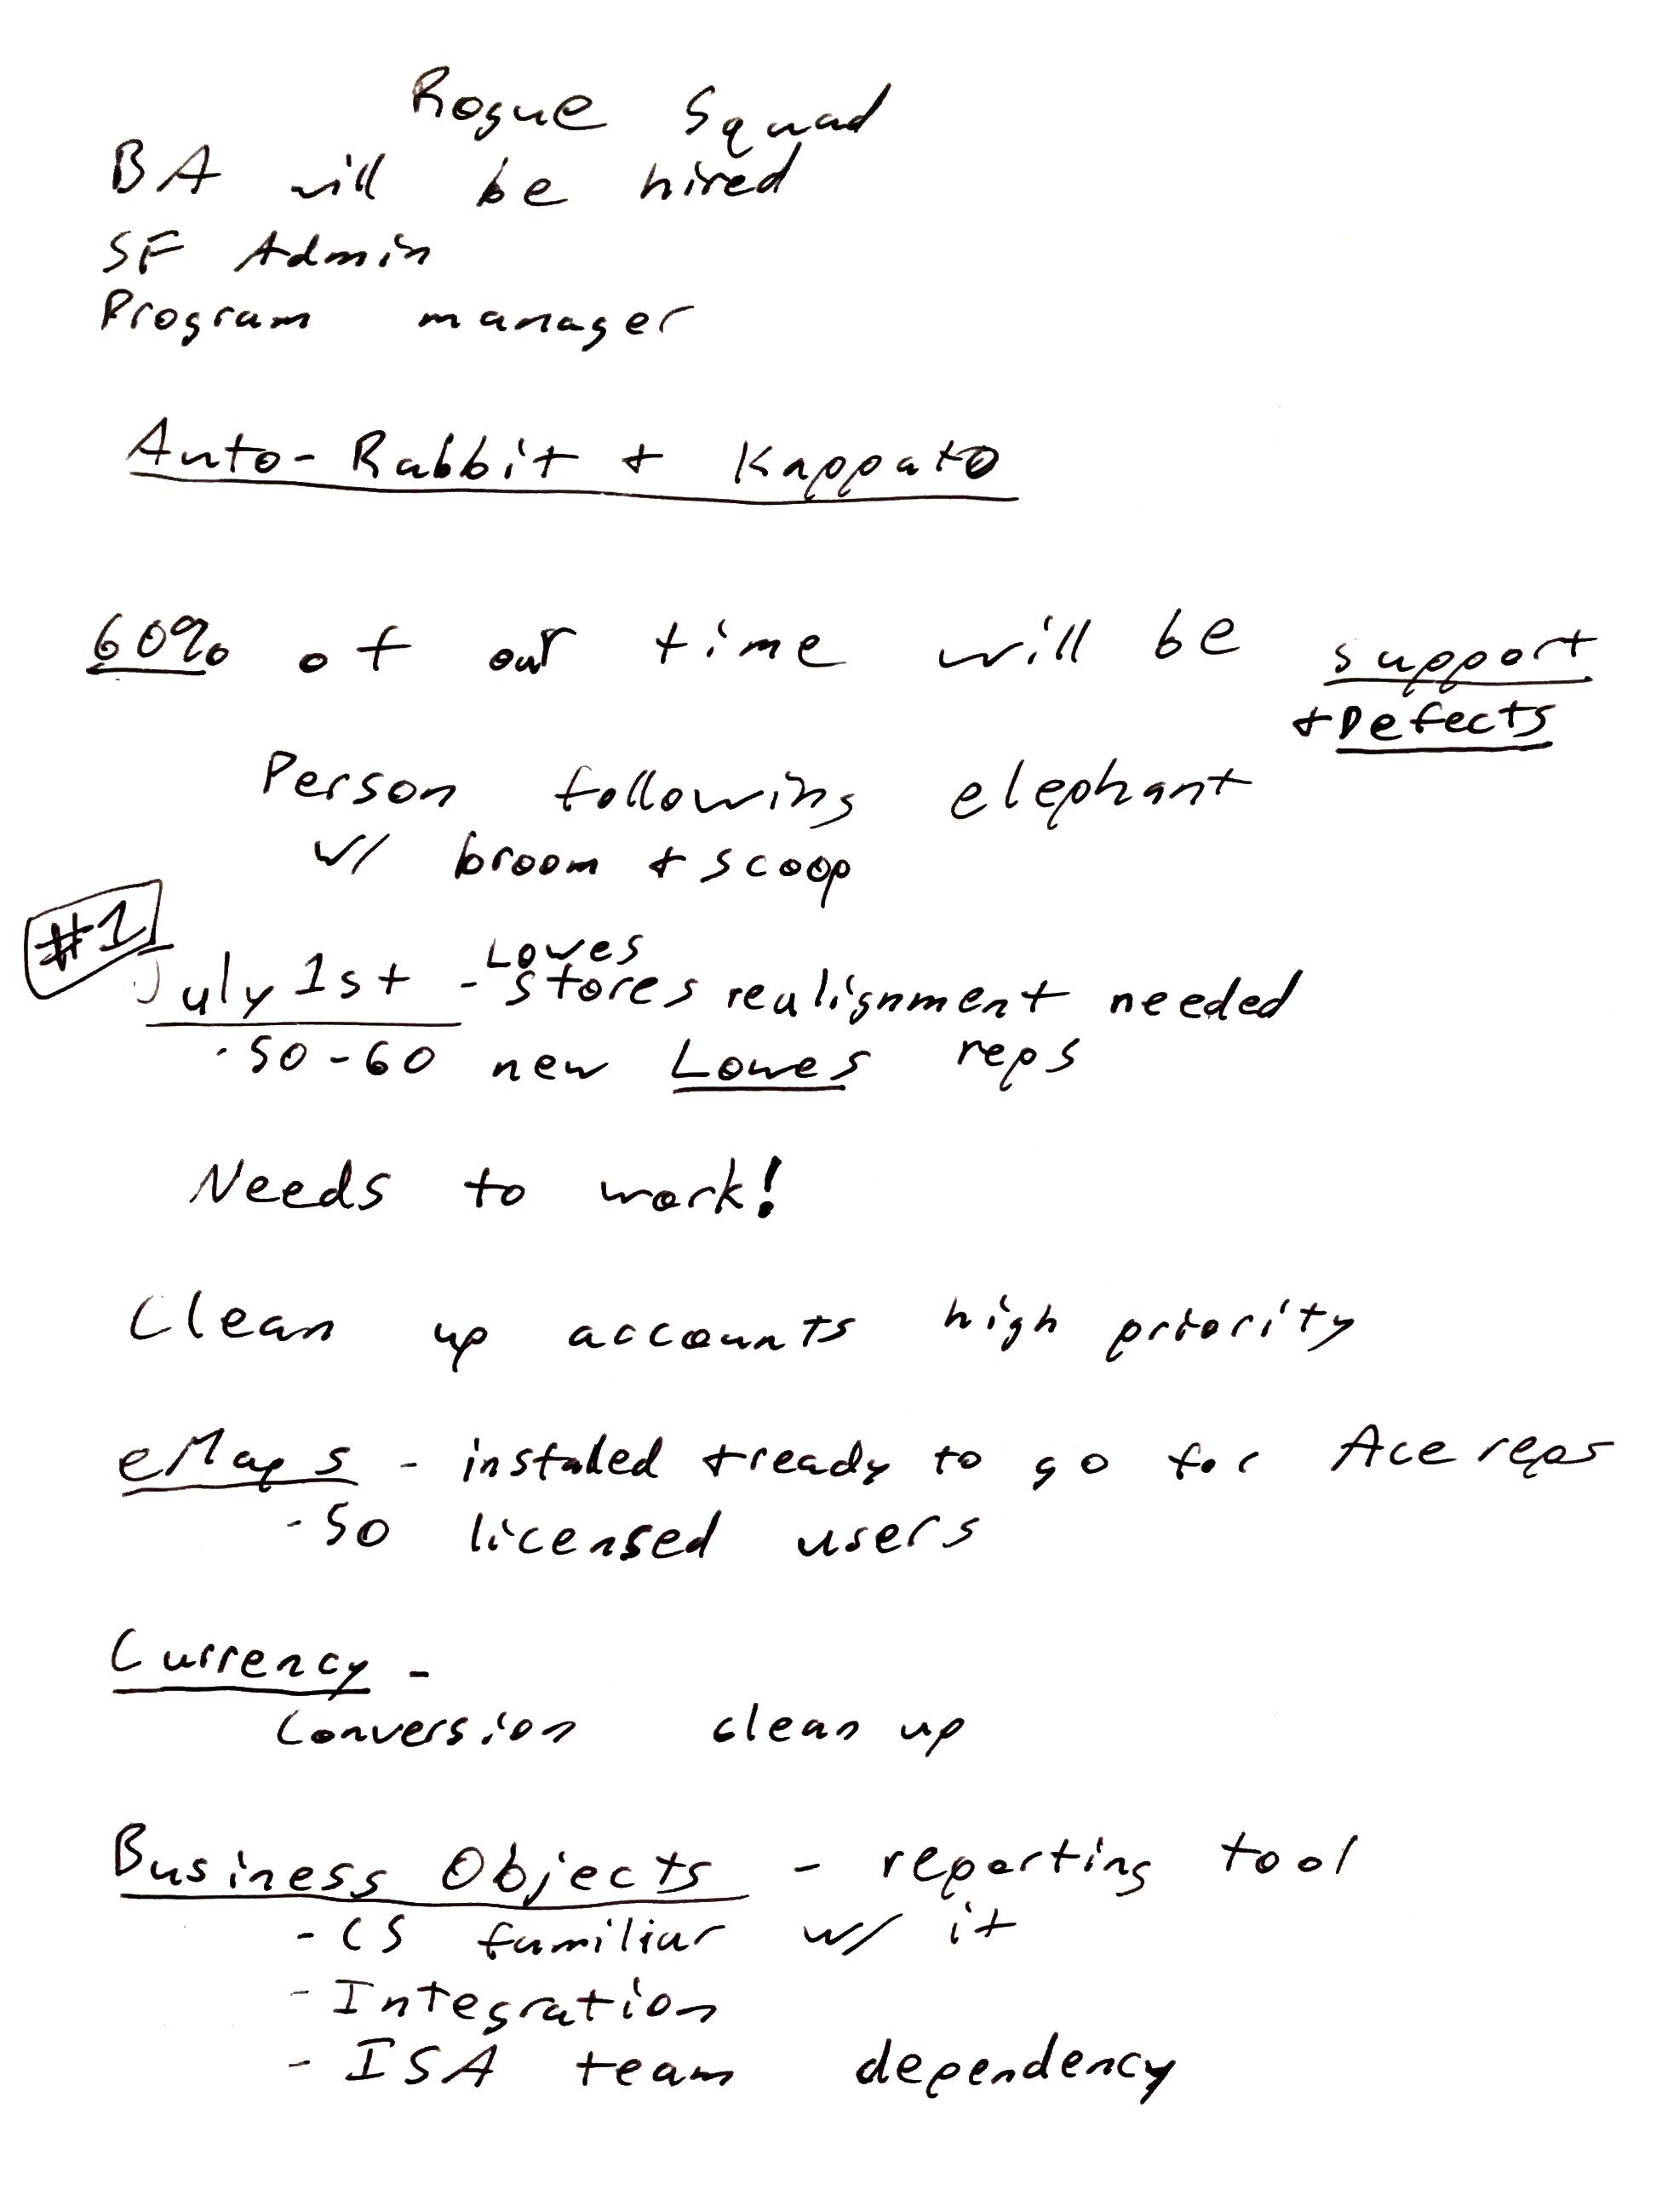 Rogue Squad
BA will be hired
SF Admin
Program manager
Auto-Rabbit + Kappato
60% of our time will be support
+ Defects
Person following elephant
w/ broom + scoop
#1
Lowes
July 1st - stores realignment needed
- 50-60 new Lowes reps
Needs to work!
Clean up accounts high priority
eMaps - installed + ready to go for Ace reps
- 50 licensed users
Currency -
Conversion clean up
Business Objects - reporting tool
- CS familiar w/ it
- Integration
- ISA team dependency